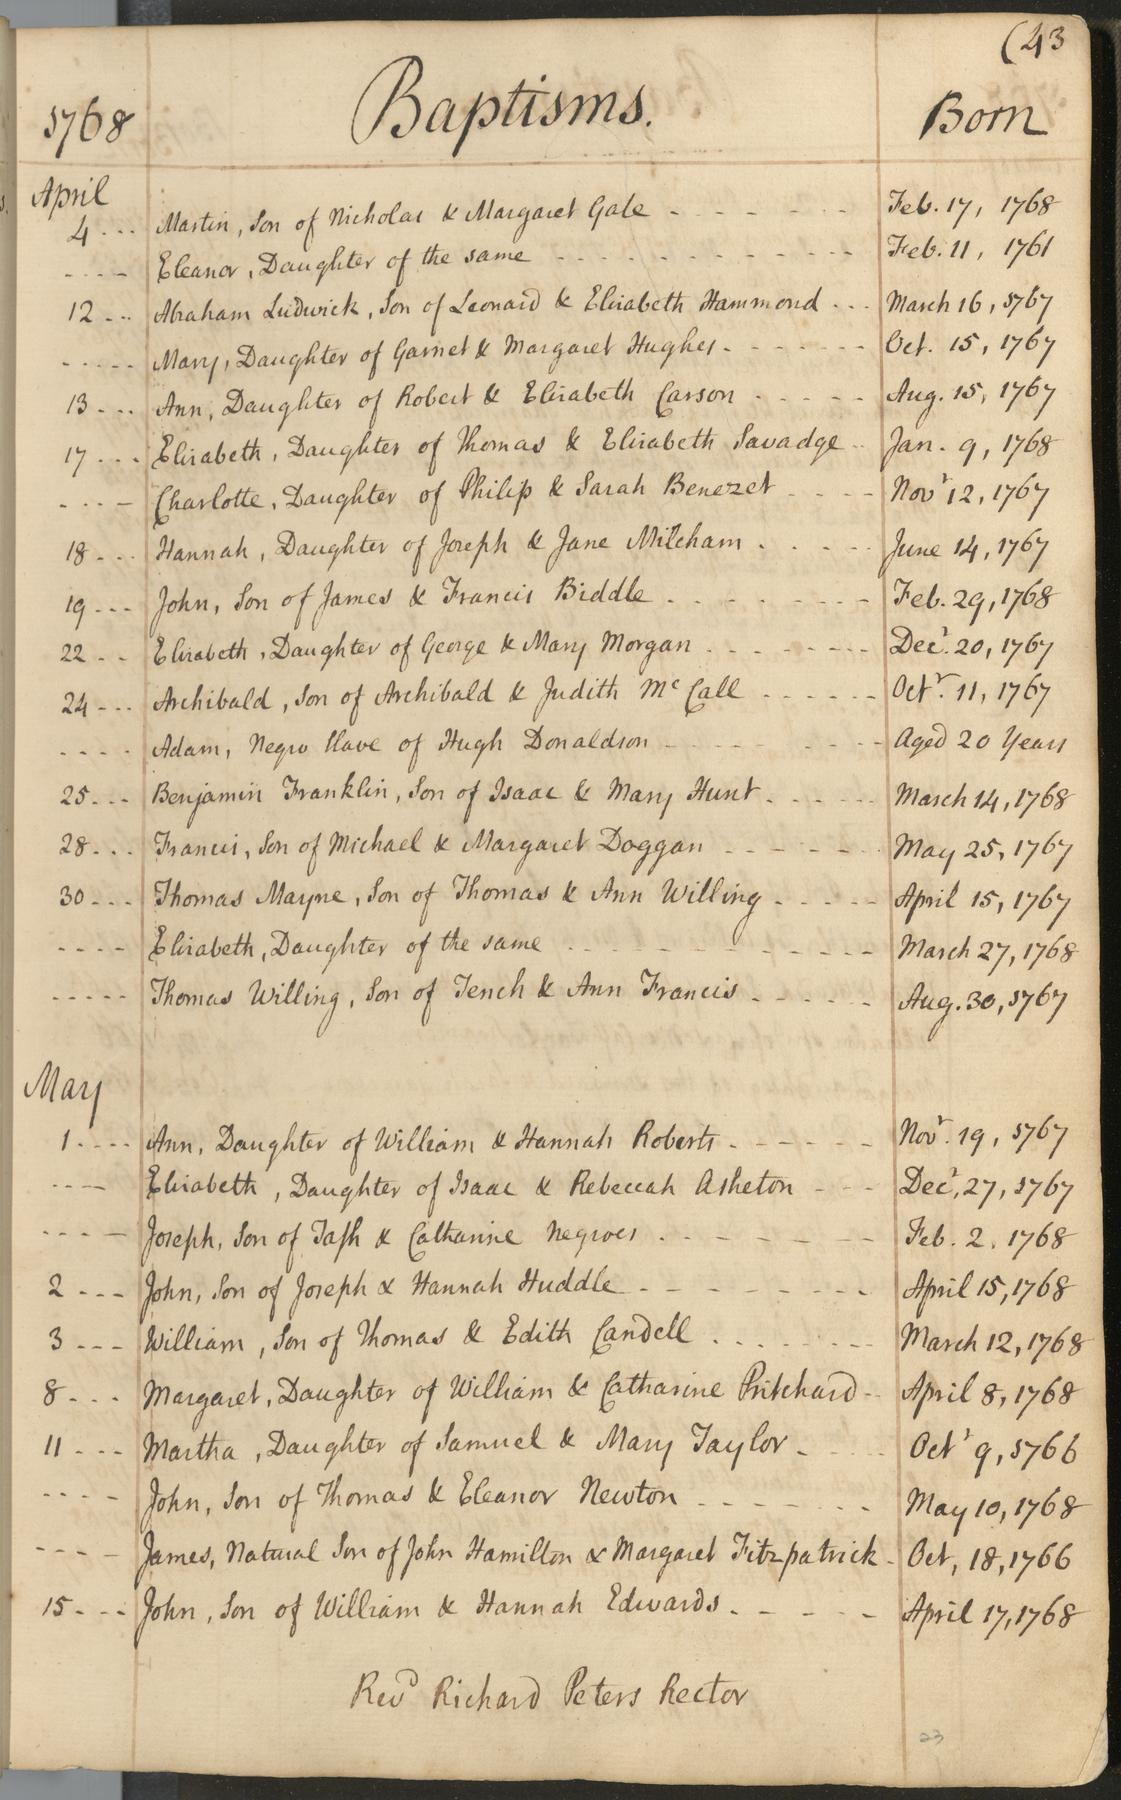 (43
1768 Baptisms. Born
April
4 - - - Martin, Son of Nicholas & Margaret Gale - - - - - - - Feb. 17, 1768
- - - - Eleanor, Daughter of the same - - - - - - - - - - - - Feb. 11, 1761
12 - - - Abraham Ludwick, Son of Leonard & Elisabeth Hammond - - - March 16, 1767
- - - - - Mary, Daughter of Garnet & Margaret Hughes - - - - - - - Oct. 15, 1767
13 - - - Ann, Daughter of Robert & Elisabeth Carson - - - - - Aug. 15, 1767
17 - - - Elisabeth, Daughter of Thomas & Elisabeth Savadge - - Jan. 9, 1768
- - - - Charlotte, Daughter of Philip & Sarah Benezet - - - - Novr 12, 1767
18 - - - Hannah, Daughter of Joseph & Jane Mitcham - - - - - June 14, 1767
19 - - - John, Son of James & Francis Biddle - - - - - - - Feb. 29, 1768
22 - - Elisabeth, Daughter of George & Mary Morgan - - - - - - - Decr. 20, 1767
24 - - - Archibald, Son of Archibald & Judith Mc Call - - - - - - Octr. 11, 1767
- - - - Adam, Negro Slave of Hugh Donaldson - - - - - - - - - Aged 20 Years
25 - - - Benjamin Franklin, Son of Isaac & Mary Hunt - - - - - March 14, 1768
28 - - - Francis, Son of Michael & Margaret Doggan - - - - - - May 25, 1767
30 - - - Thomas Mayne, Son of Thomas & Ann Willing - - - - - April 15, 1767
- - - - Elisabeth, Daughter of the same - - - - - - - - - - - - March 27, 1768
- - - - - Thomas Willing, Son of Tench & Ann Francis - - - - - - Aug. 30, 1767
May
1 - - - - Ann, Daughter of William & Hannah Roberts - - - - - - Novr. 19, 1767
- - - - Elisabeth, Daughter of Isaac & Rebeccah Asheton - - - Decr, 27, 1767
- - - - Joseph, Son of Tash & Catharine Negroes - - - - - - - - Feb. 2. 1768
2 - - - John, Son of Joseph & Hannah Huddle - - - - - - - - April 15, 1768
3 - - - William, Son of Thomas & Edith Candell - - - - - - - March 12, 1768
8 - - - Margaret, Daughter of William & Catharine Pritchard - - April 8, 1768
11 - - - Martha, Daughter of Samuel & Mary Taylor - - - - Octr 9, 1766
- - - - John, Son of Thomas & Eleanor Newton - - - - - - - May 10, 1768
- - - - James, Natural Son of John Hamilton & Margaret Fitzpatrick - Oct, 18, 1766
15 - - - John, Son of William & Hannah Edwards - - - - - April 17, 1768
Revd Richard Peters Rector
23